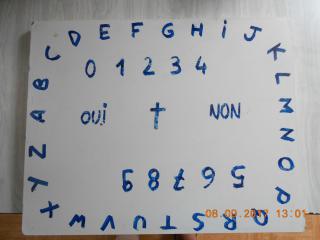 A B C D E F G H i J K L M N O P Q R S T U V W X Y Z
0 1 2 3 4
OUi NON
5 6 7 8 9
08.09.2017 13:01